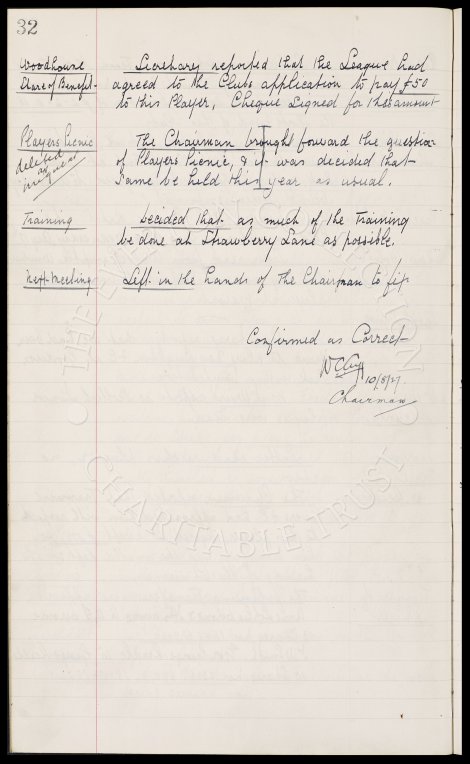 32
Woodhouse
Share of Benefit.
Secretary reported that the League had
agreed to the Clubs application to pay £50
to this Player, Cheque signed for this amount
Players Picnic
deleted as
The Chairman brought forward the question
of Players Picnic, & it was decided that
same be held this year as usual.
Training
Decided that as much of the Training
be done at Strawberry Lane as possible.
Next Meeting
Left in the hands of the Chairman to fix
Confirmed as Correct
W C Cuff
10/8/27.
Chairman
THE EVERTON COLLECTION
CHARITABLE TRUST